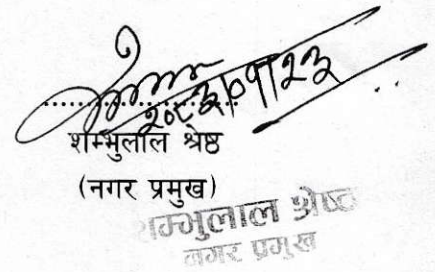 २०८३/०१/२३
शम्भुलाल श्रेष्ठ
(नगर प्रमुख)
शम्भुलाल श्रेष्ठ
नगर प्रमुख